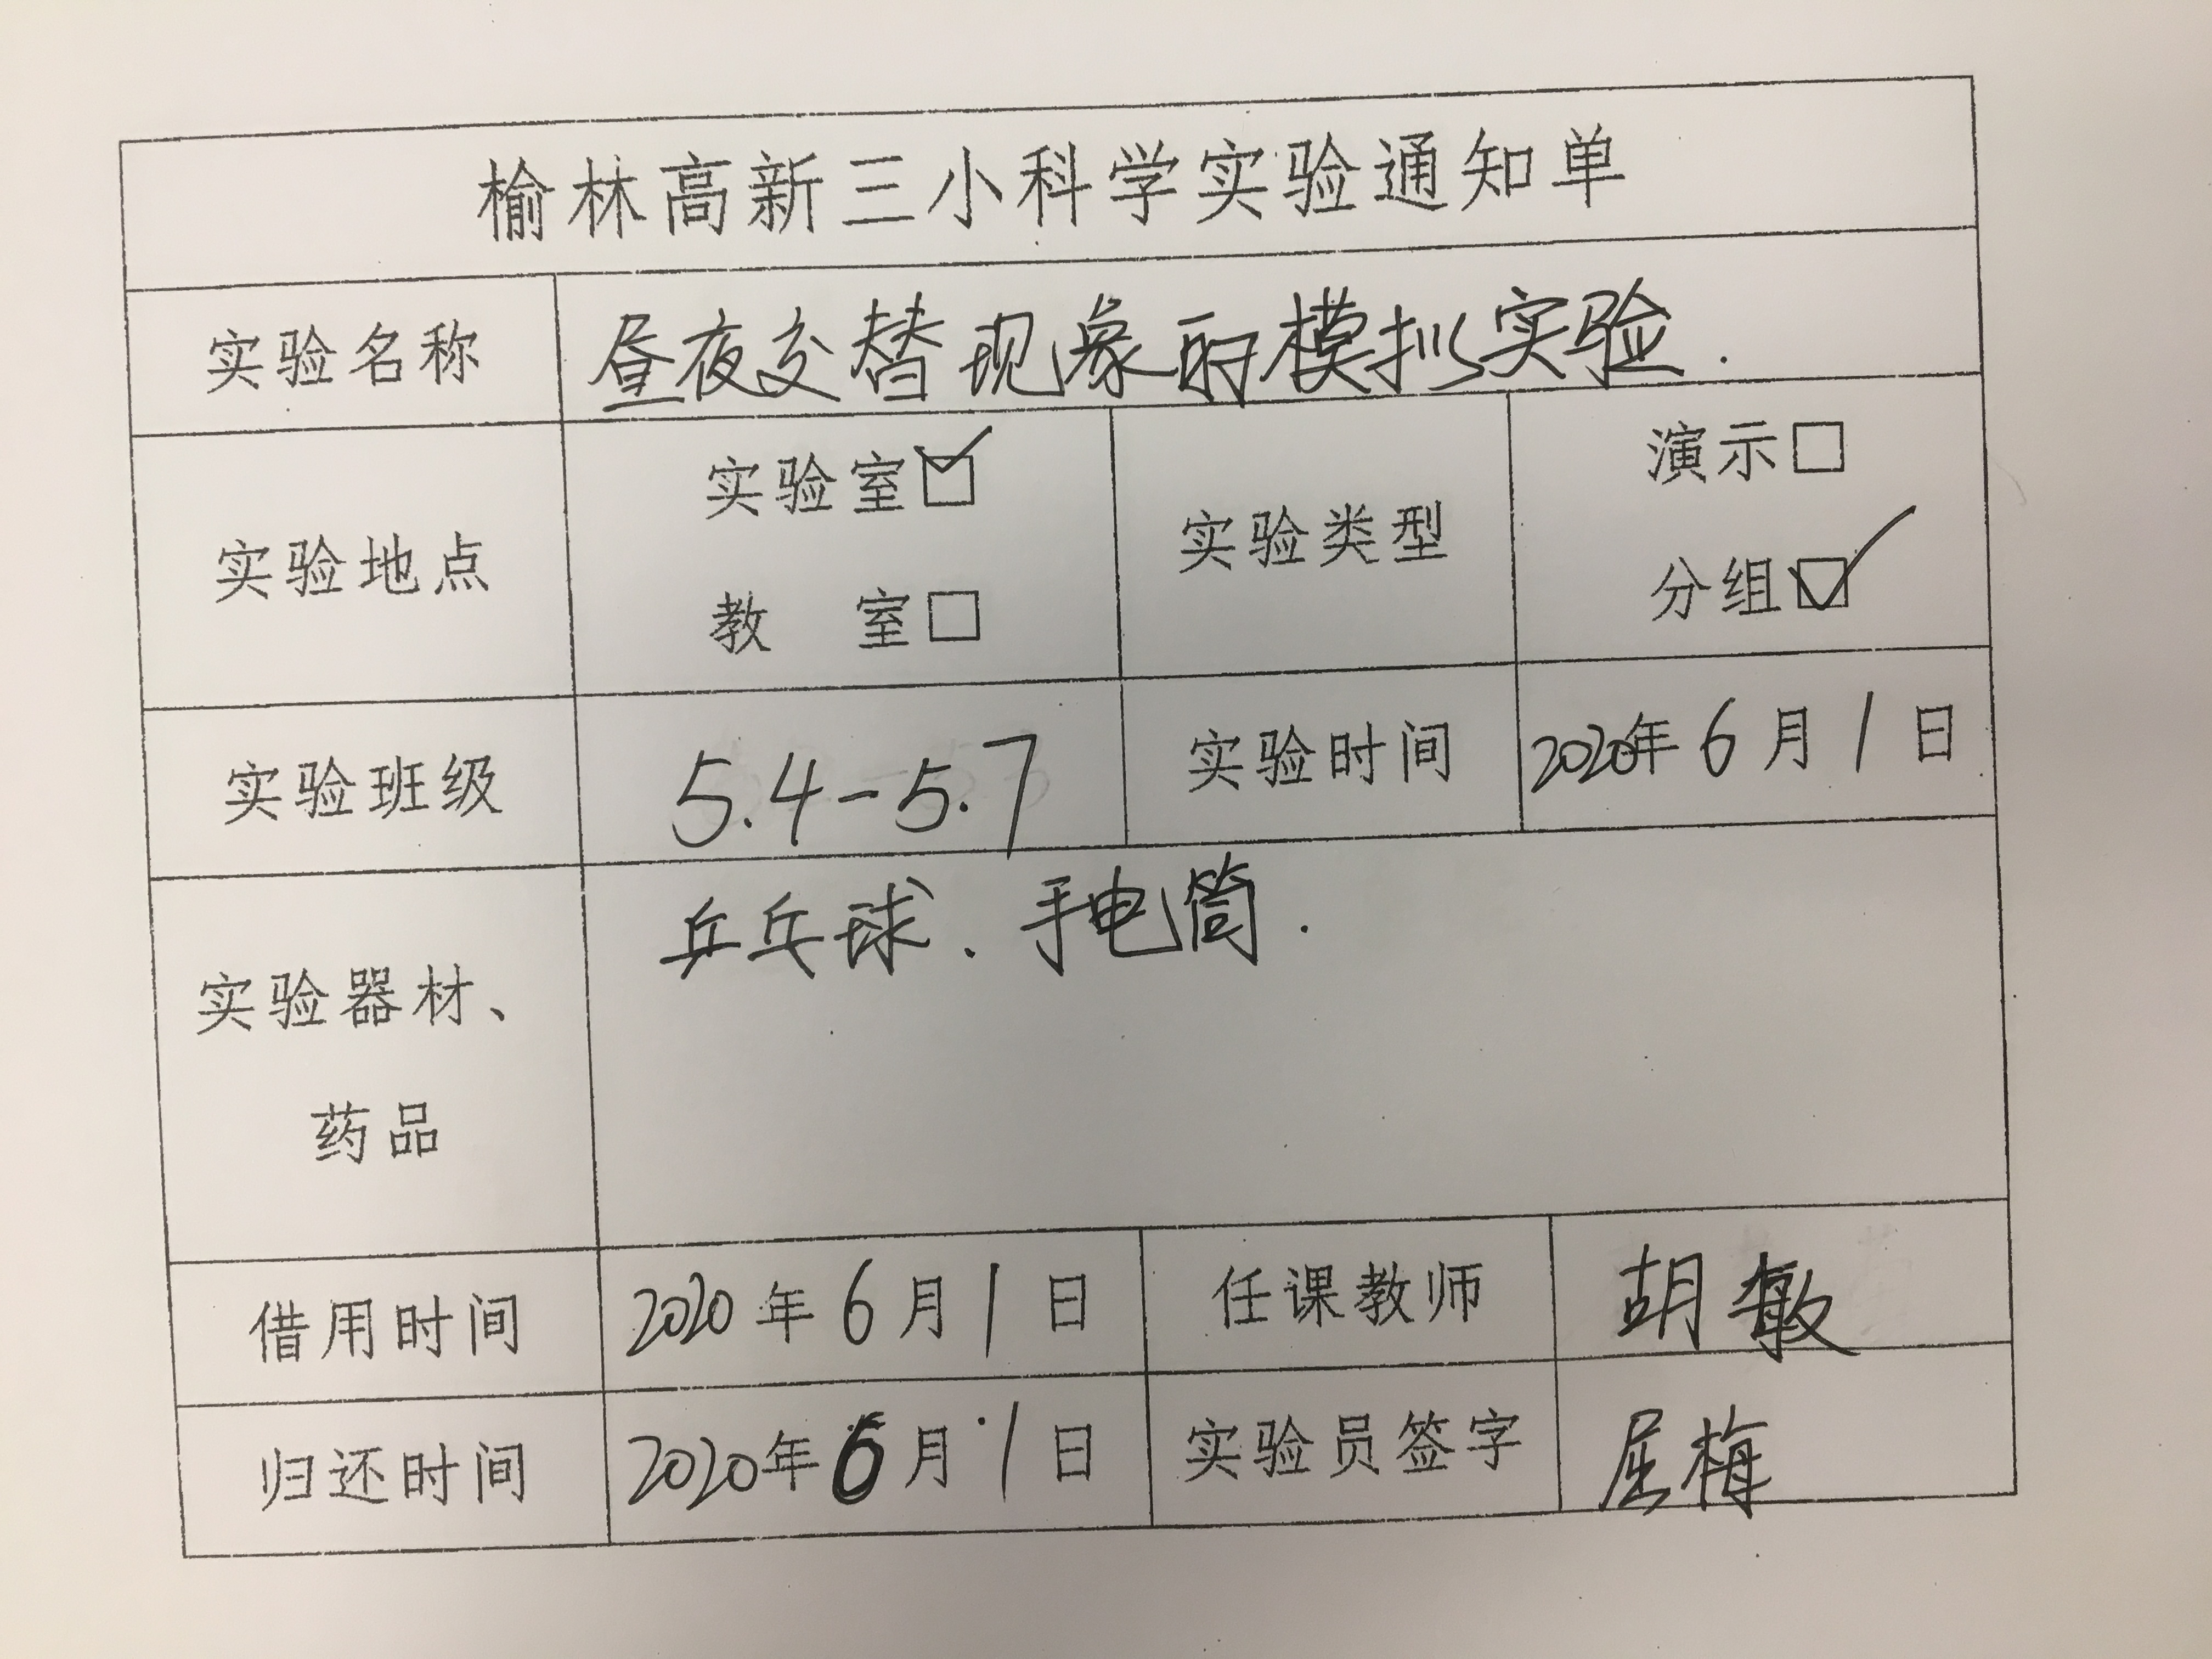 榆林高新三小科学实验通知单
实验名称 昼夜交替现象的模拟实验.
实验地点 实验室☑ 教 室□ 实验类型 演示□ 分组☑
实验班级 5.4-5.7 实验时间 2020年6月1日
实验器材、药品 乒乓球、手电筒.
借用时间 2020年6月1日 任课教师 胡敏
归还时间 2020年6月1日 实验员签字 屈梅